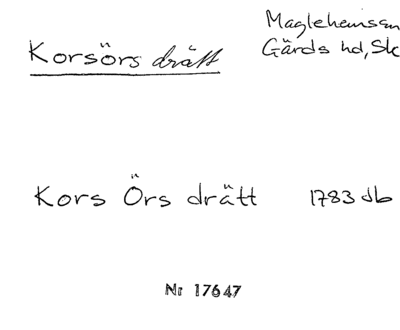 Maglehems sn
Gärds hd, Sk
Korsörs drätt
Kors Örs drätt 1783 db
Nr 17647